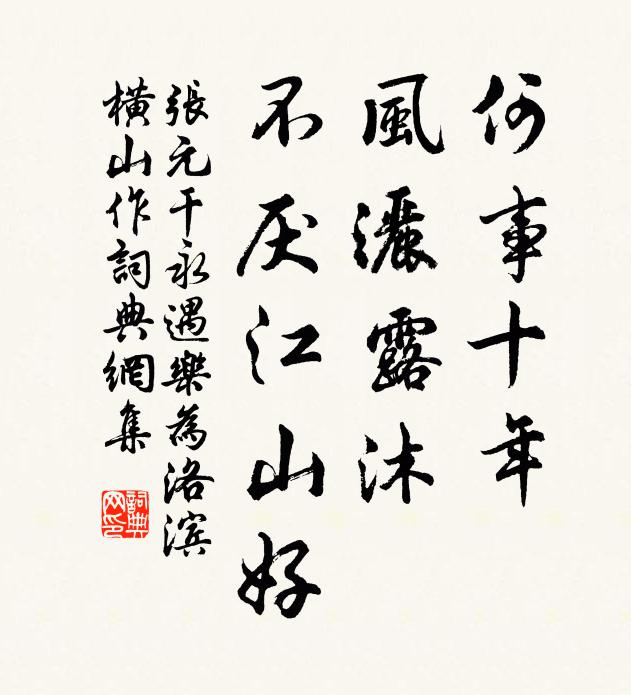 何事十年
風灑露沐
不厌江山好
張元干永遇樂為洛滨
橫山作詞典網集
詞典网印